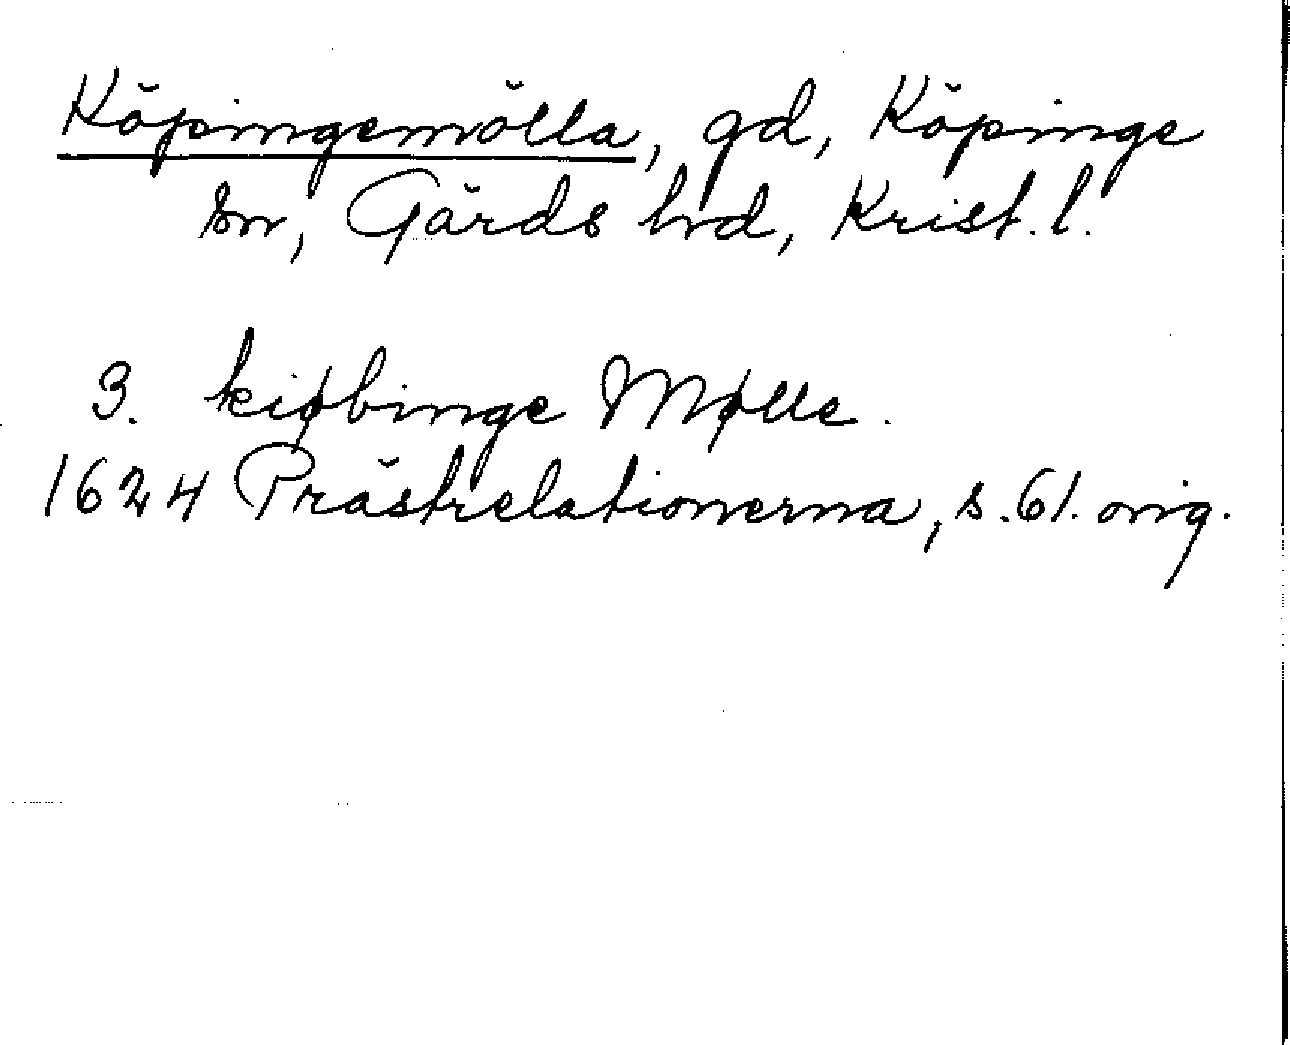 Köpingemölla, gd, Köpinge
sn, Gärds hrd, Krist. l.
3. kiøbinge Mølle.
1624 Prästrelationerna, s. 61. orig.